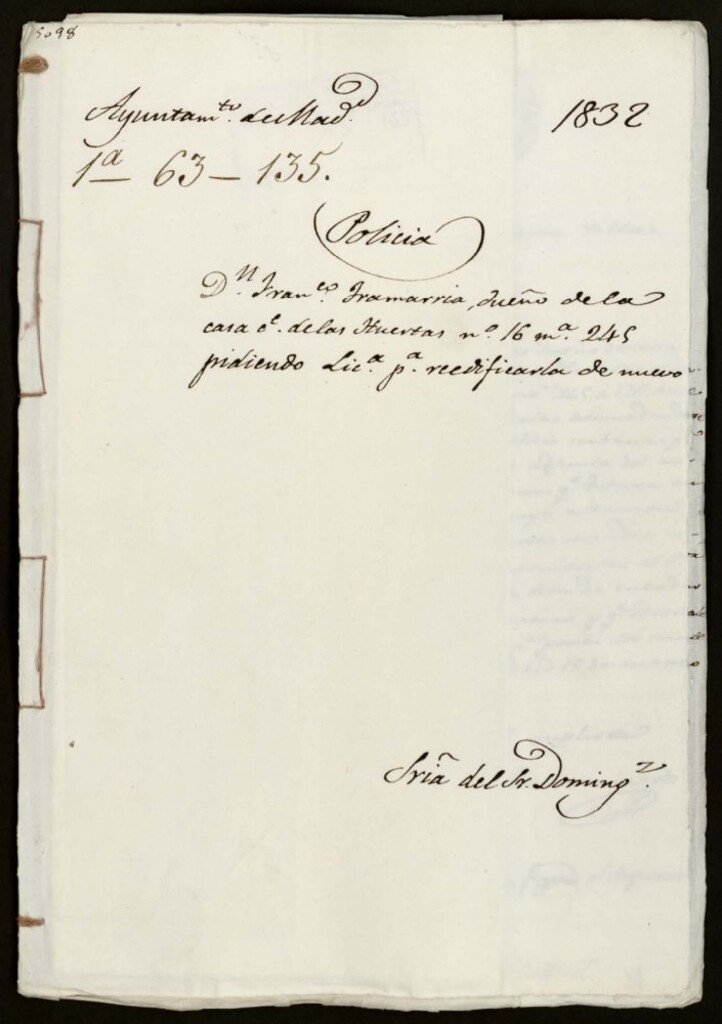 5098
Ayuntam.to de Mad.d 1832
1a 63-135.
Policia
D.n Fran.co Iramarria, dueño de la
casa c.e de las Huertas n.o 16 m.a 245
pidiendo Lic.a p.a reedificarla de nuevo
Sria del Sr. Doming.z